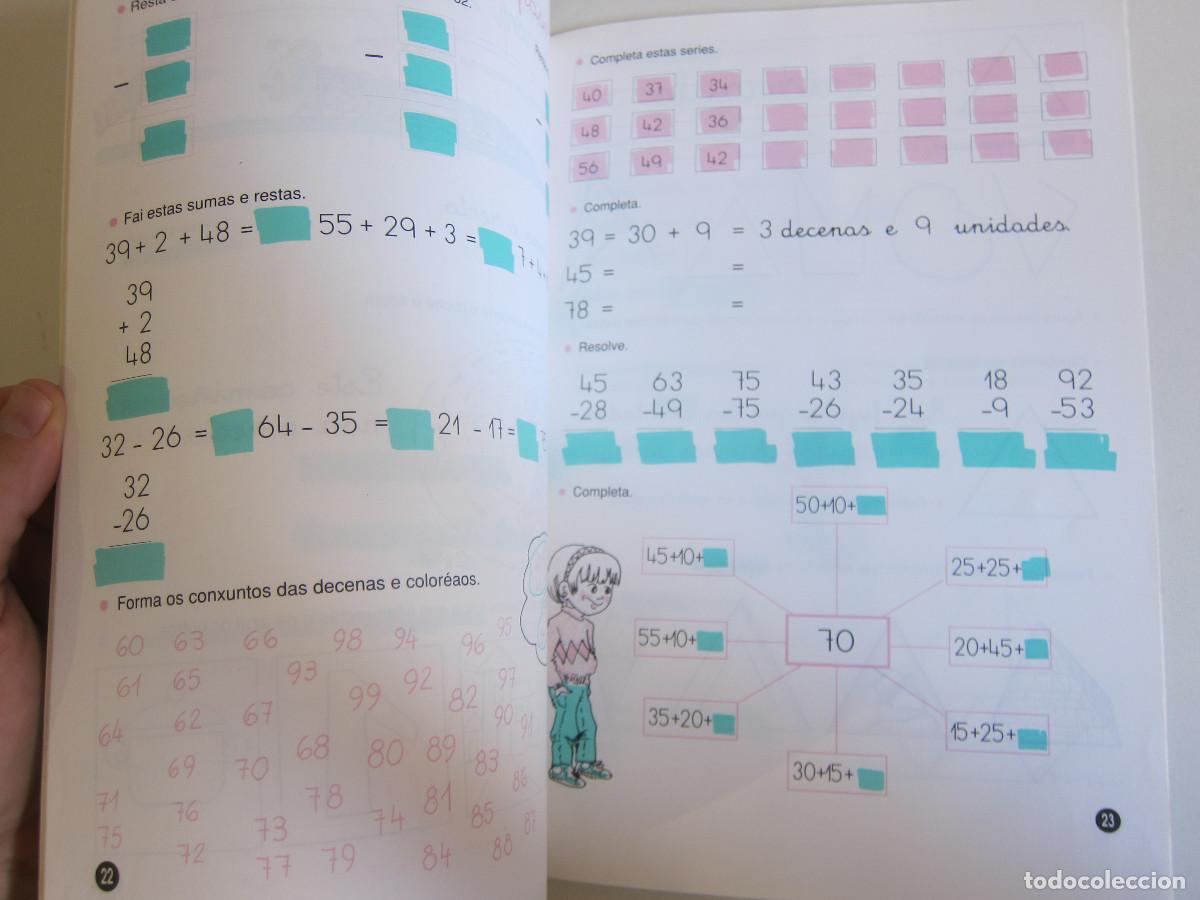 Resta
52.
Fai estas sumas e restas.
39 + 2 + 48 = 55 + 29 + 3 = 7 + 4 +
39
+ 2
48
32 - 26 = 64 - 35 = 21 - 17 =
32
-26
Forma os conxuntos das decenas e coloréaos.
60 63 66 98 94 96 95
61 65 93 99 92 82 97
64 62 67 68 80 89 90 91
69 70 78 81 83 86
71 76 73 74 85 87
75 72 77 79 84 88
22
Completa estas series.
40 37 34
48 42 36
56 49 42
Completa.
39 = 30 + 9 = 3 decenas e 9 unidades.
45 = =
78 = =
Resolve.
45 63 75 43 35 18 92
-28 -49 -75 -26 -24 -9 -53
Completa.
50+10+
45+10+ 25+25+
55+10+ 70 20+45+
35+20+ 15+25+
30+15+
23
todocoleccion